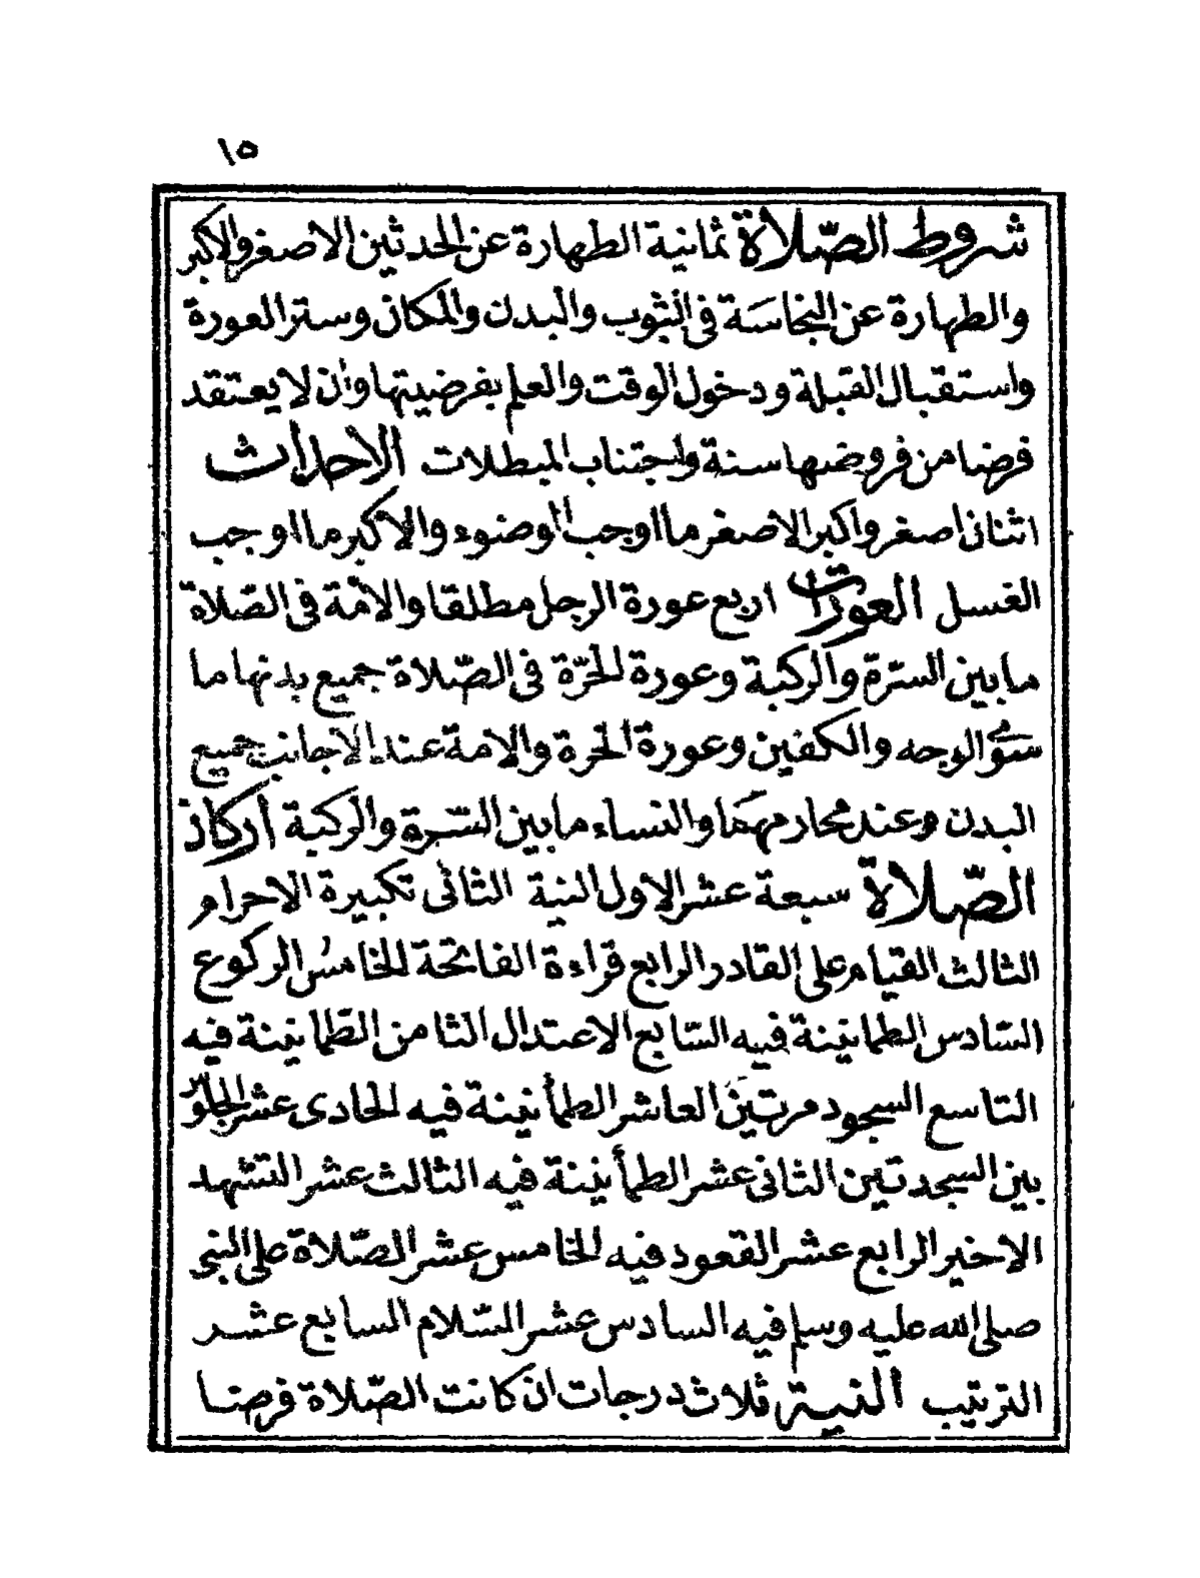 ١٥
شروط الصّلاة ثمانية الطهارة عن الحدثين الاصغر والاكبر
والطهارة عن النجاسة فى الثوب والبدن والمكان وستر العورة
واستقبال القبلة ودخول الوقت والعلم بفرضيتها وأن لا يعتقد
فرضا من فروضها سنة واجتناب المبطلات الاحداث
اثنان اصغر واكبر الاصغر ما اوجب الوضوء والاكبر ما اوجب
الغسل العورات اربع عورة الرجل مطلقا والامّة فى الصّلاة
ما بين السّرّة والركبة وعورة الحرّة فى الصّلاة جميع بدنها ما
سوى الوجه والكفين وعورة الحرة والامة عند الاجانب جميع
البدن وعند محارمهما والنساء ما بين السّرة والركبة أركان
الصّلاة سبعة عشر الاول النية الثانى تكبيرة الاحرام
الثالث القيام على القادر الرابع قراءة الفاتحة الخامس الركوع
السّادس الطمانينة فيه السّابع الاعتدال الثامن الطّمانينة فيه
التاسع السجود مرتين العاشر الطمأنينة فيه الحادى عشر الجلوس
بين السجدتين الثانى عشر الطمأنينة فيه الثالث عشر التشهد
الاخير الرابع عشر القعود فيه الخامس عشر الصّلاة على النبى
صلى الله عليه وسلم فيه السادس عشر السّلام السابع عشر
الترتيب النية ثلاث درجات ان كانت الصّلاة فرضا